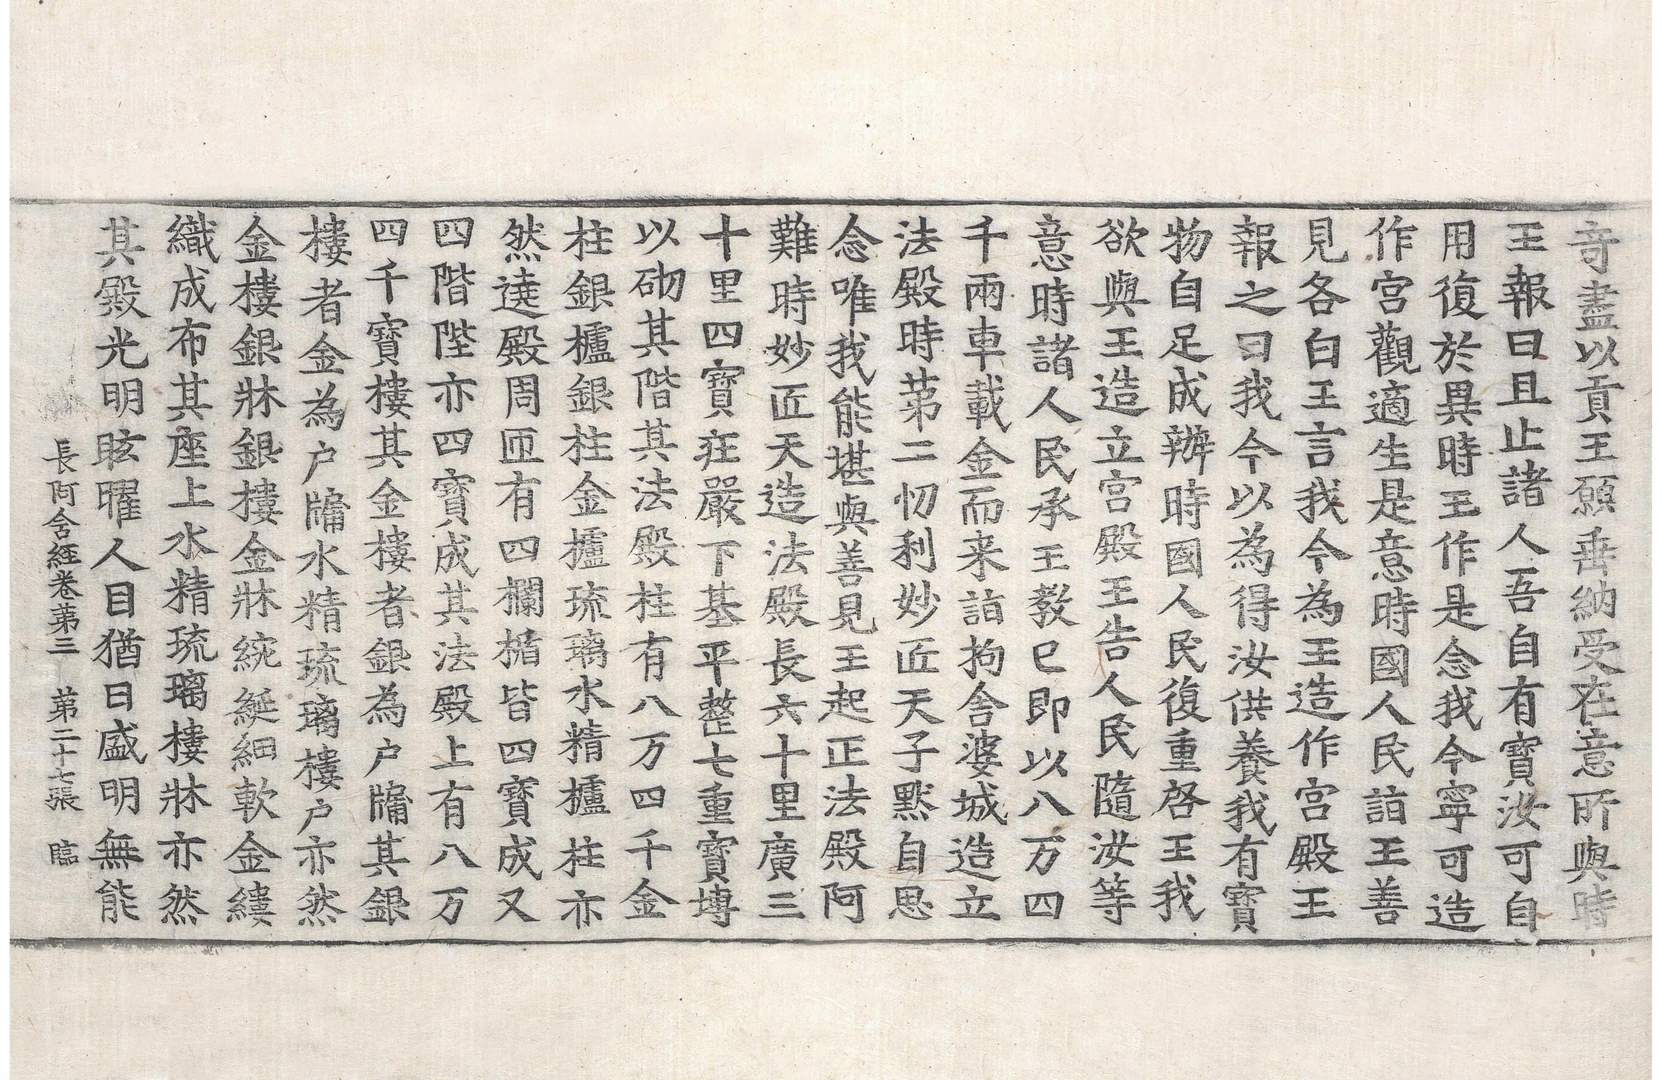 奇盡以貢王願垂納受在意所與時
王報曰且止諸人吾自有寶汝可自
用復於異時王作是念我今寧可造
作宮觀適生是意時國人民詣王善
見各白王言我今為王造作宮殿王
報之曰我今以為得汝供養我有寶
物自足成辦時國人民復重啓王我
欲與王造立宮殿王告人民隨汝等
意時諸人民承王教已即以八万四
千兩車載金而来詣拘舍婆城造立
法殿時第二忉利妙匠天子默自思
念唯我能堪與善見王起正法殿阿
難時妙匠天造法殿長六十里廣三
十里四寶疘嚴下基平整七重寶塼
以砌其階其法殿柱有八万四千金
柱銀櫨銀柱金櫨琉璃水精櫨柱亦
然遶殿周匝有四欄楯皆四寶成又
四階陛亦四寶成其法殿上有八万
四千寶樓其金樓者銀為户牖其銀
樓者金為户牖水精琉璃樓户亦然
金樓銀牀銀樓金牀綩綖細軟金縷
織成布其座上水精琉璃樓牀亦然
其殿光明眩曜人目猶日盛明無能
長阿含經卷第三 第二十七張 臨